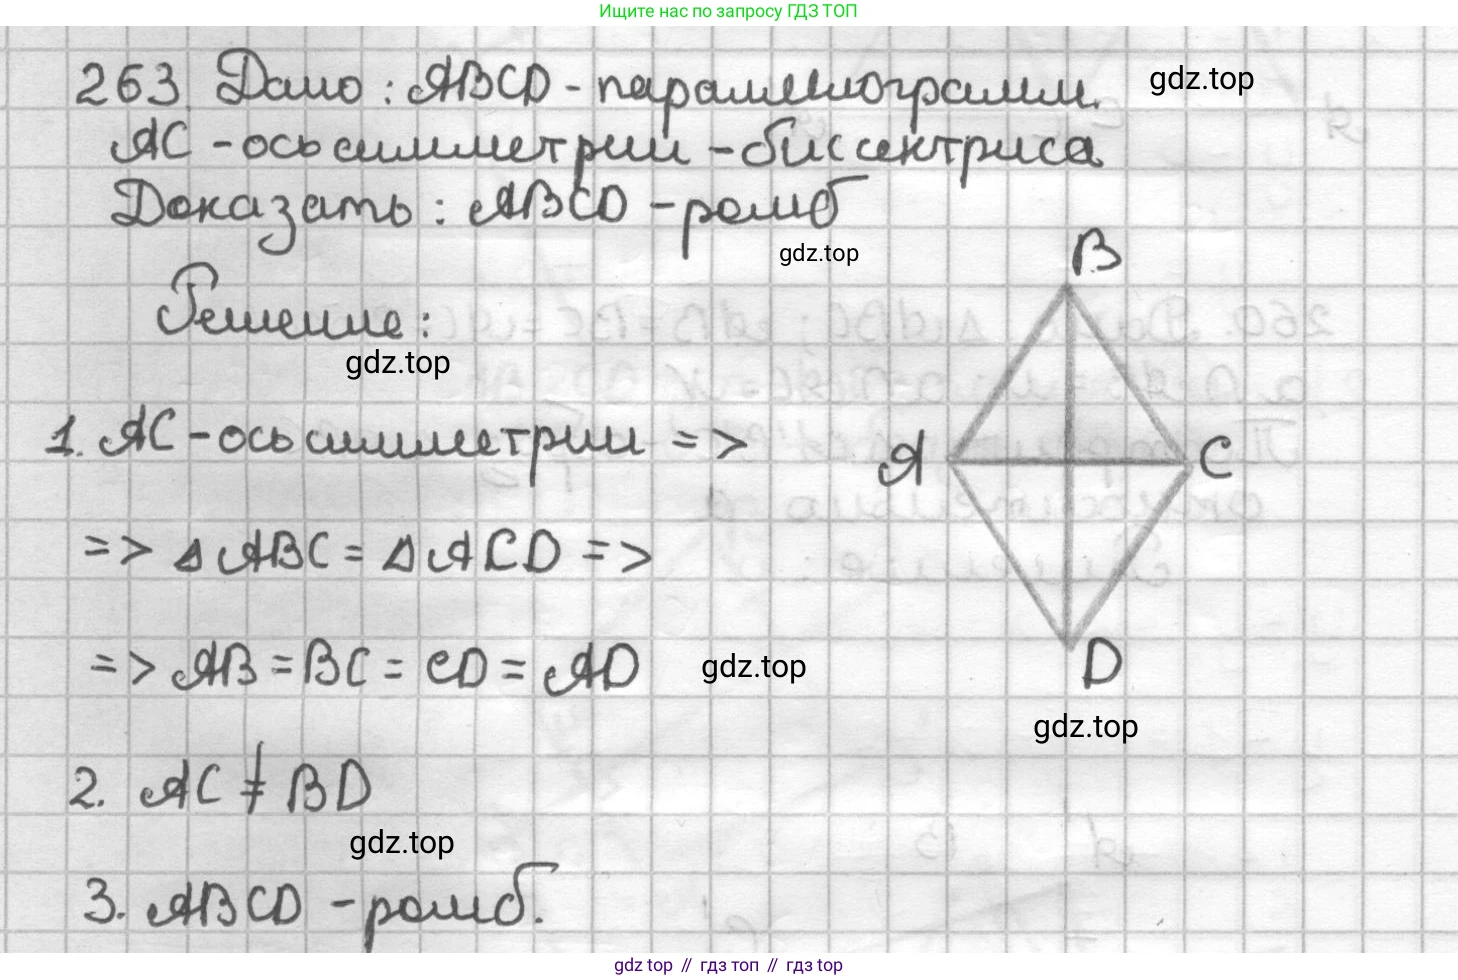 Ищите нас по запросу ГДЗ ТОП
263. Дано: ABCD - параллелограмм.
gdz.top
AC - ось симметрии - биссектриса
Доказать: ABCD - ромб
gdz.top
B
Решение:
gdz.top
1. AC - ось симметрии =>
A
C
=> △ABC = △ACD =>
=> AB = BC = CD = AD
gdz.top
D
gdz.top
2. AC ≠ BD
gdz.top
3. ABCD - ромб.
gdz top // гдз топ // gdz top